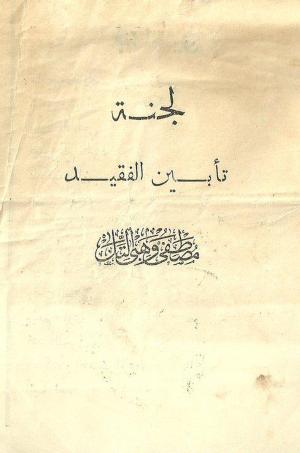 لجنة
تأبين الفقيد
مصطفى وهبي التل